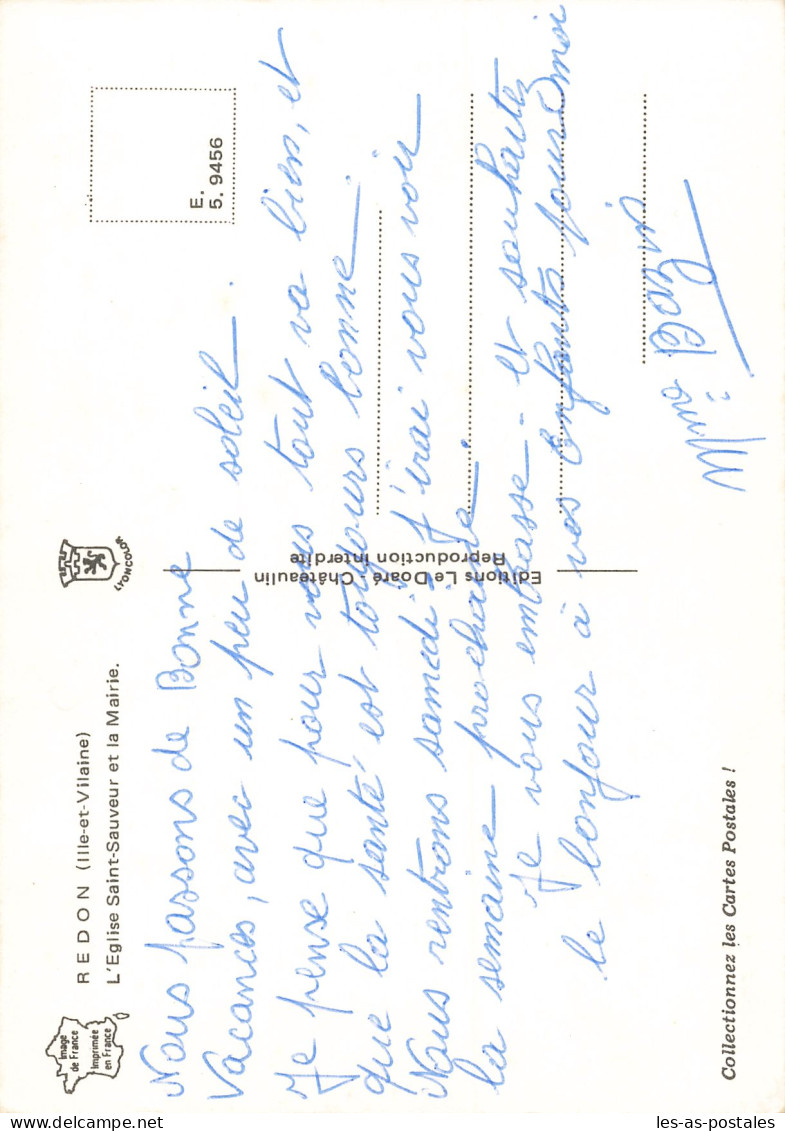 Image
de France
Imprimée
en France
REDON (Ille-et-Vilaine)
L'Eglise Saint-Sauveur et la Mairie.
LYONCOLOR
E.
5. 9456
Nous passons de Bonne
Vacances, avec un peu de soleil.
Je pense que pour vous tout va bien, et
que la santé est toujours bonne.
Nous rentrons samedi, j'irai vous voir
la semaine prochaine.
Je vous embrasse - et souhaitez
le bonjour à vos Enfants pour moi
Mme Bazin
Editions Le Doaré - Châteaulin
Reproduction interdite
Collectionnez les Cartes Postales !
les-as-postales